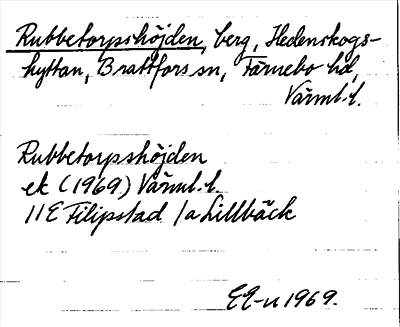 Rubbetorpshöjden, berg, Hedenskogs-
hyttan, Brattfors sn, Färnebo hd,
Värml. l.
Rubbetorpshöjden
ek (1969) Värml. l.
11E Filipstad 1a Lillbäck
EE-n 1969.